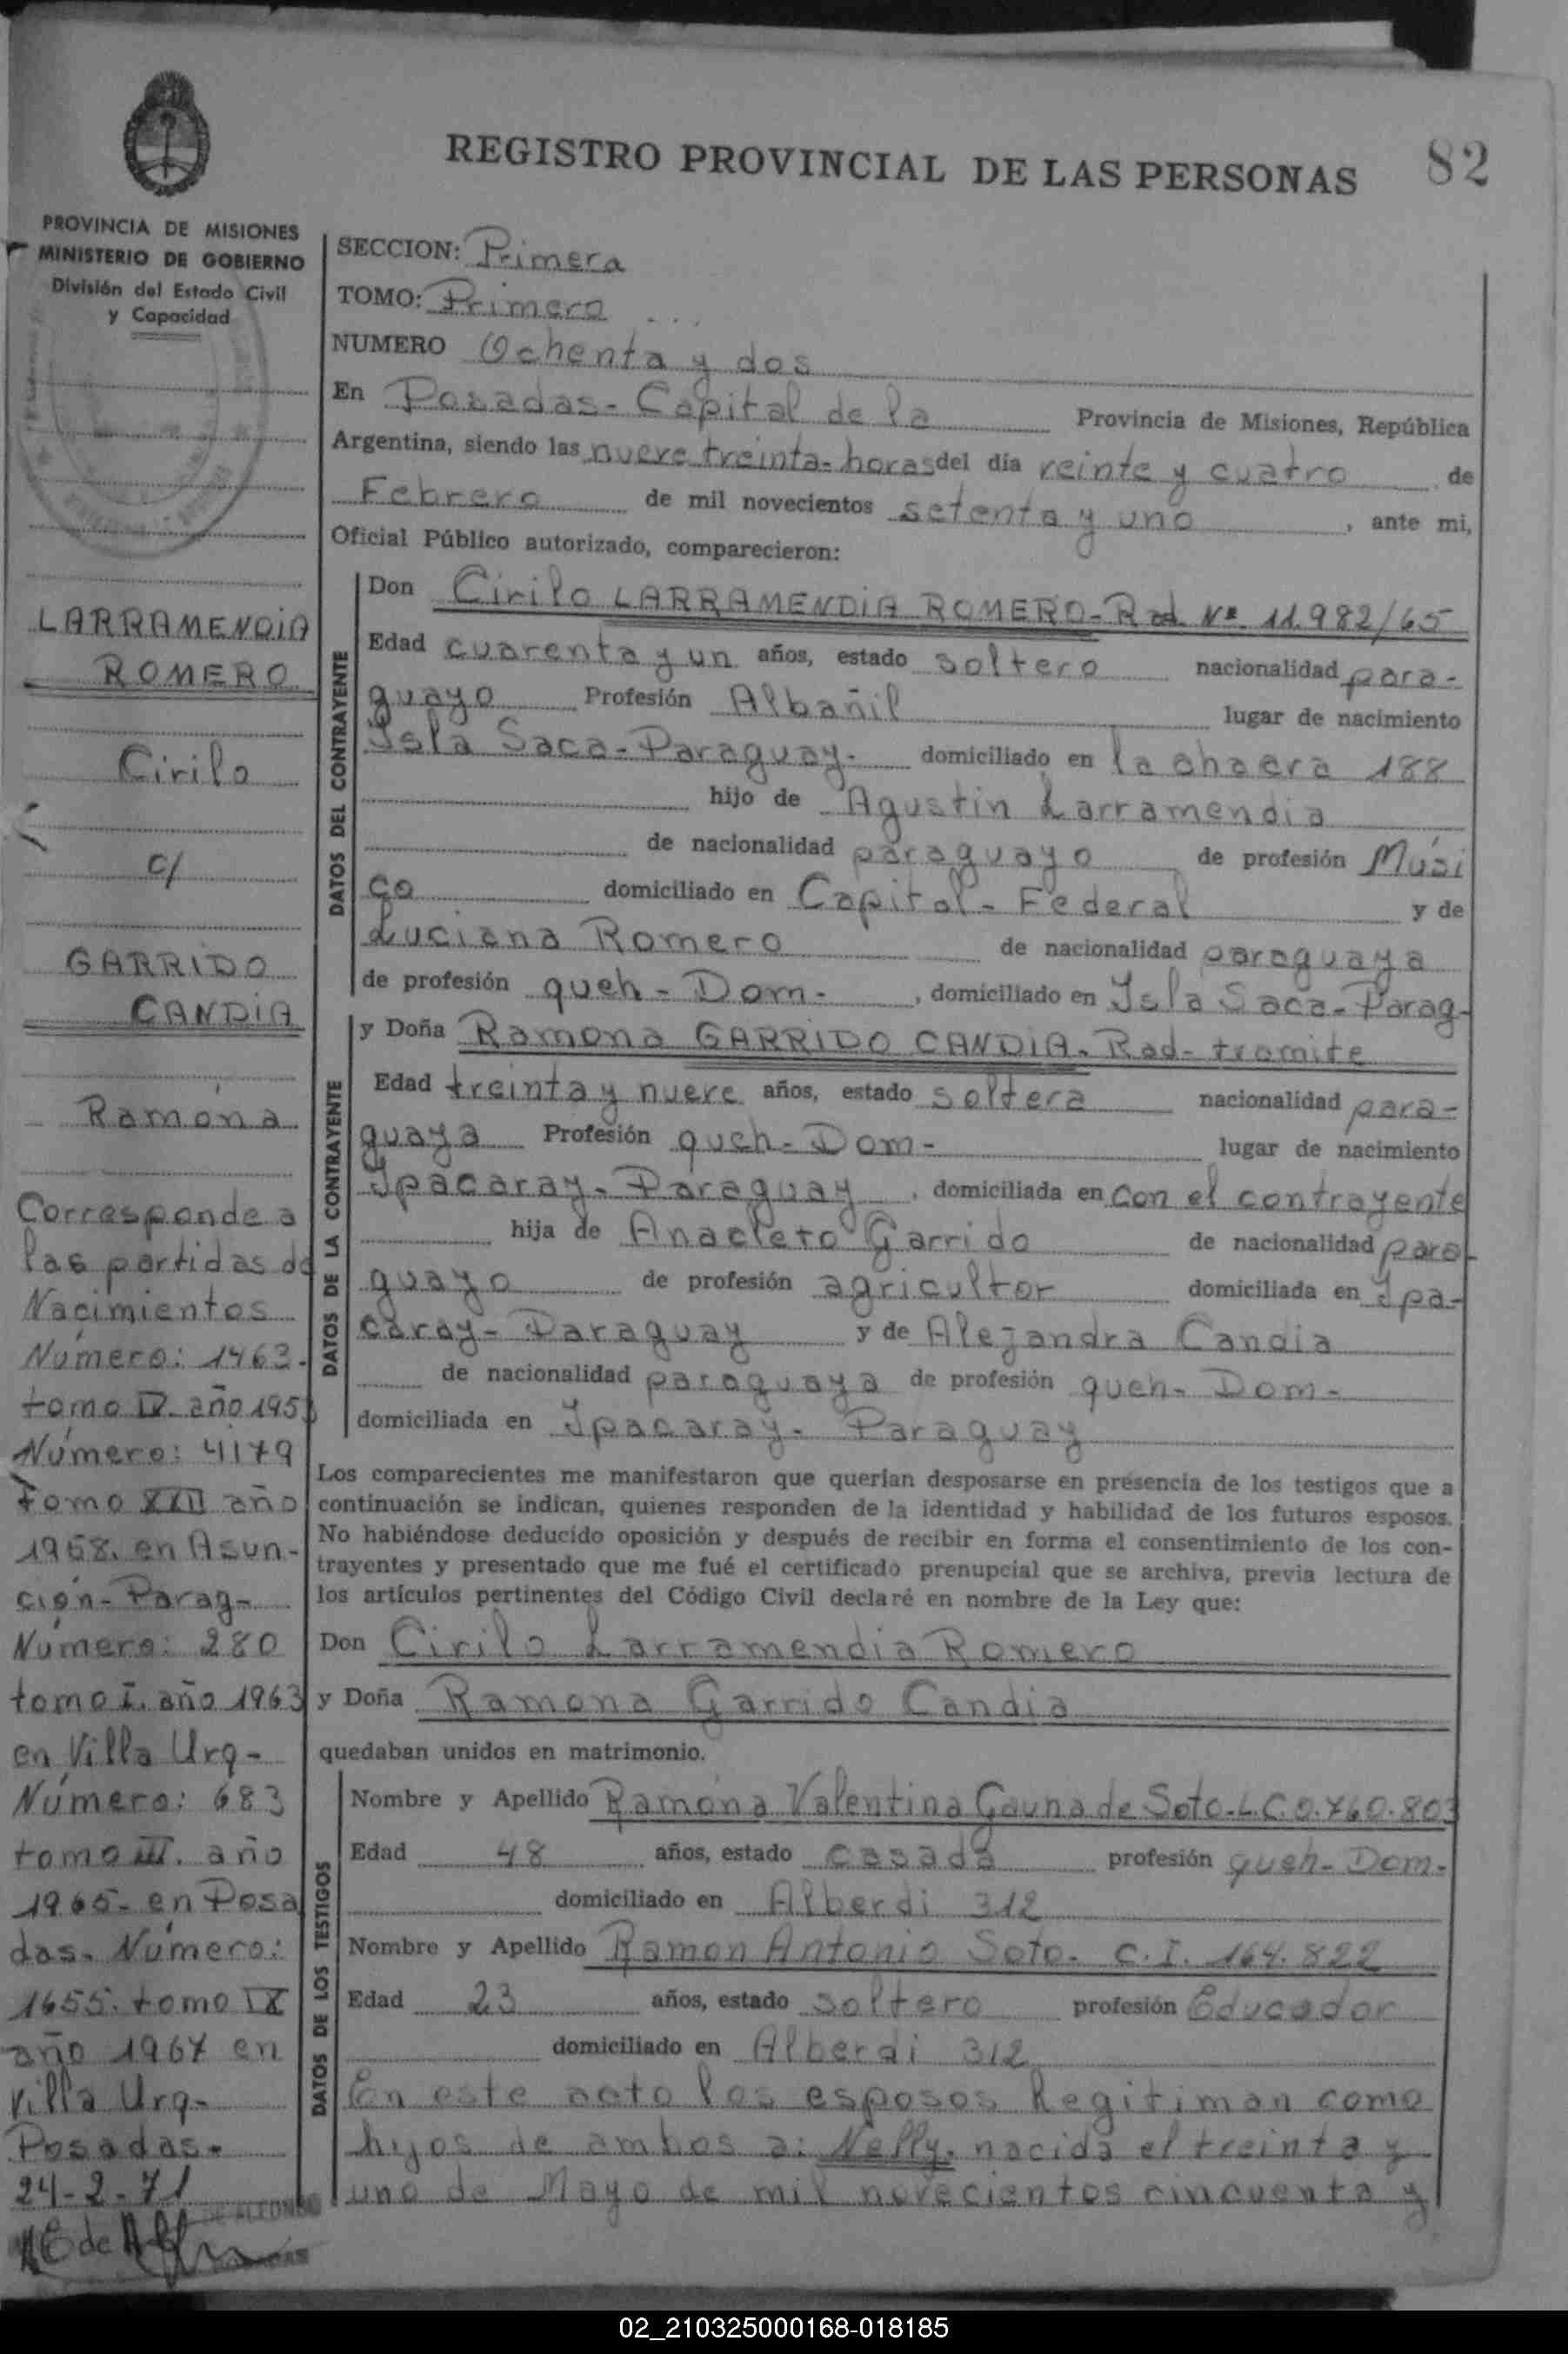 REGISTRO PROVINCIAL DE LAS PERSONAS
82
PROVINCIA DE MISIONES
MINISTERIO DE GOBIERNO
División del Estado Civil
y Capacidad
LARRAMENDIA
ROMERO
Cirilo
c/
GARRIDO
CANDIA
Ramona
Corresponde a
las partidas de
Nacimientos
Número: 1463.
tomo IV. año 195
Número: 4179
Tomo XXII año
1958. en Asun-
ción- Parag-
Número: 280
tomo I. año 1963
en Villa Urq-
Número: 683
tomo III. año
1965- en Posa
das. Número:
1655. tomo IX
año 1967 en
Villa Urq-
Posadas-
24-2-71
DE ALFONSO
SECCION: Primera
TOMO: Primero
NUMERO Ochenta y dos
En Posadas- Capital de la Provincia de Misiones, República
Argentina, siendo las nueve treinta- horas del día veinte y cuatro de
Febrero de mil novecientos setenta y uno, ante mi,
Oficial Público autorizado, comparecieron:
DATOS DEL CONTRAYENTE
Don Cirilo LARRAMENDIA ROMERO- Rad. Nº. 11.982/65
Edad cuarenta y un años, estado soltero nacionalidad para-
guayo Profesión Albañil lugar de nacimiento
Isla Saca- Paraguay- domiciliado en la chacra 188
hijo de Agustin Larramendia
de nacionalidad paraguayo de profesión Músi
co domiciliado en Capital- Federal y de
Luciana Romero de nacionalidad paraguaya
de profesión queh- Dom-, domiciliado en Isla Saca- Parag-
DATOS DE LA CONTRAYENTE
y Doña Ramona GARRIDO CANDIA- Rad- tramite
Edad treinta y nueve años, estado soltera nacionalidad para-
guaya Profesión queh- Dom- lugar de nacimiento
Ipacaray- Paraguay, domiciliada en con el contrayente
hija de Anacleto Garrido de nacionalidad para-
guayo de profesión agricultor domiciliada en Ipa-
caray- Paraguay y de Alejandra Candia
de nacionalidad paraguaya de profesión queh- Dom-
domiciliada en Ipacaray- Paraguay
Los comparecientes me manifestaron que querían desposarse en presencia de los testigos que a
continuación se indican, quienes responden de la identidad y habilidad de los futuros esposos.
No habiéndose deducido oposición y después de recibir en forma el consentimiento de los con-
trayentes y presentado que me fué el certificado prenupcial que se archiva, previa lectura de
los artículos pertinentes del Código Civil declaré en nombre de la Ley que:
Don Cirilo Larramendia Romero
y Doña Ramona Garrido Candia
quedaban unidos en matrimonio.
DATOS DE LOS TESTIGOS
Nombre y Apellido Ramona Valentina Gauna de Soto- L.C. 0.760.803
Edad 48 años, estado casada profesión queh- Dom-
domiciliado en Alberdi 312
Nombre y Apellido Ramon Antonio Soto- C.I. 164.822
Edad 23 años, estado soltero profesión Educador
domiciliado en Alberdi 312
En este acto los esposos Legitiman como
hijos de ambos a: Nelly. nacida el treinta y
uno de Mayo de mil novecientos cincuenta y
02_210325000168-018185